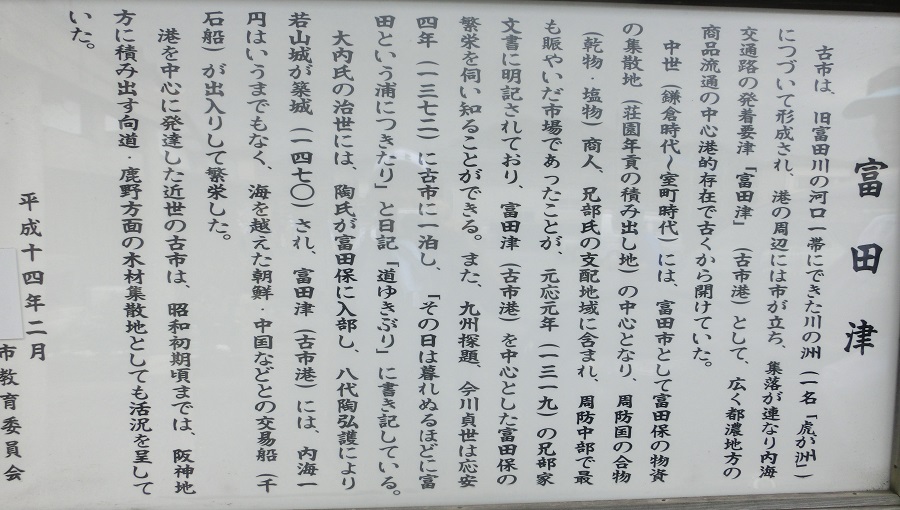 富田津
古市は、旧富田川の河口一帯にできた川の洲（一名「虎が洲」）
につづいて形成され、港の周辺には市が立ち、集落が連なり内海
交通路の発着要津「富田津」（古市港）として、広く都濃地方の
商品流通の中心港的存在で古くから開けていた。
中世（鎌倉時代～室町時代）には、富田市として富田保の物資
の集散地（荘園年貢の積み出し地）の中心となり、周防国の合物
（乾物・塩物）商人、兄部氏の支配地域に含まれ、周防中部で最
も賑やいだ市場であったことが、元応元年（一三一九）の兄部家
文書に明記されており、富田津（古市港）を中心とした富田保の
繁栄を伺い知ることができる。また、九州探題、今川貞世は応安
四年（一三七二）に古市に一泊し、「その日は暮れぬるほどに富
田という浦につきたり」と日記「道ゆきぶり」に書き記している。
大内氏の治世には、陶氏が富田保に入部し、八代陶弘護により
若山城が築城（一四七〇）され、富田津（古市港）には、内海一
円はいうまでもなく、海を越えた朝鮮・中国などとの交易船（千
石船）が出入りして繁栄した。
港を中心に発達した近世の古市は、昭和初期頃までは、阪神地
方に積み出す向道・鹿野方面の木材集散地としても活況を呈して
いた。
平成十四年二月
市教育委員会